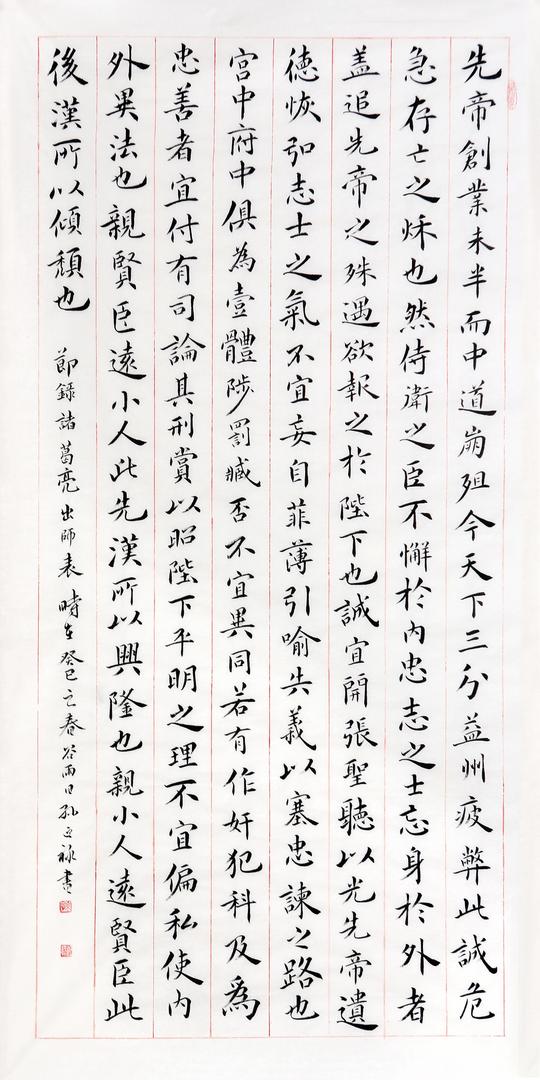 先帝創業未半而中道崩殂今天下三分益州疲弊此誠危
急存亡之秌也然侍衛之臣不懈於內忠志之士忘身於外者
蓋追先帝之殊遇欲報之於陛下也誠宜開張聖聽以光先帝遺
德恢弘志士之氣不宜妄自菲薄引喻失義以塞忠諫之路也
宮中府中俱為壹體陟罰臧否不宜異同若有作奸犯科及為
忠善者宜付有司論其刑賞以昭陛下平明之理不宜偏私使內
外異法也親賢臣遠小人此先漢所以興隆也親小人遠賢臣此
後漢所以傾頹也 節錄諸葛亮出師表時在癸巳之春谷雨日孔祿書